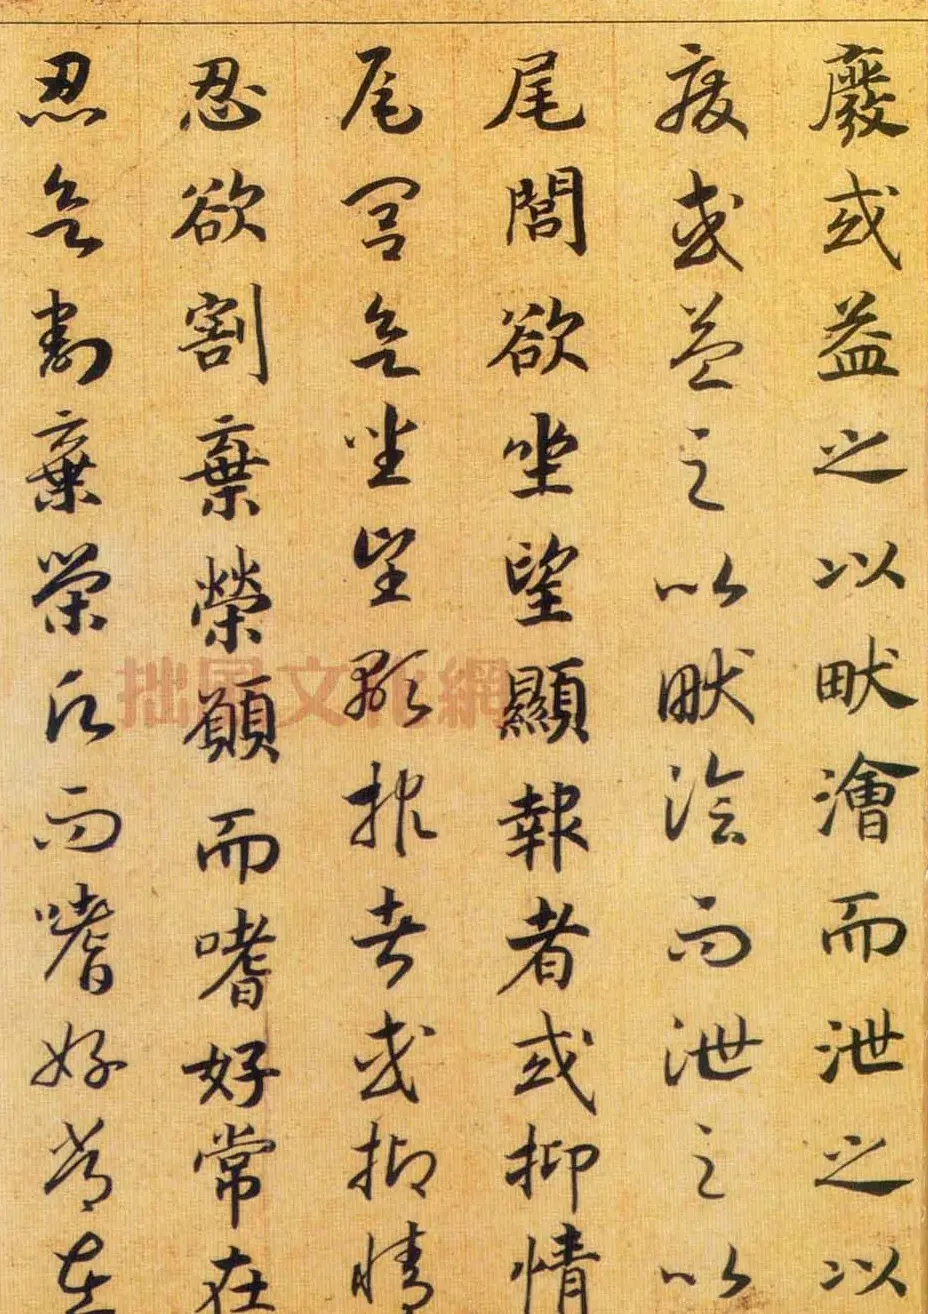 廢或益之以畎澮而泄之以
廢或益之以畎澮而泄之以
尾閭欲坐望顯報者或抑情
尾閭欲坐望顯報者或抑情
忍欲割棄榮願而嗜好常在
忍欲割棄榮願而嗜好常在
拙風文化網